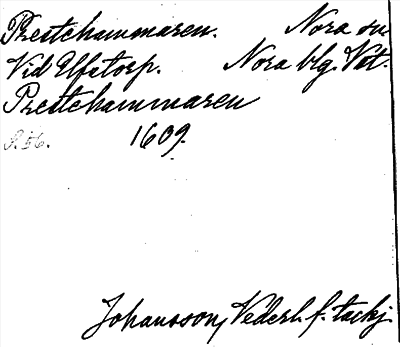 Prestehammaren. Nora sn
Vid Elfstorp. Nora blg. Vst.
Prestehammaren
S. 56. 1609.
Johansson, Nederl. f. tackj.